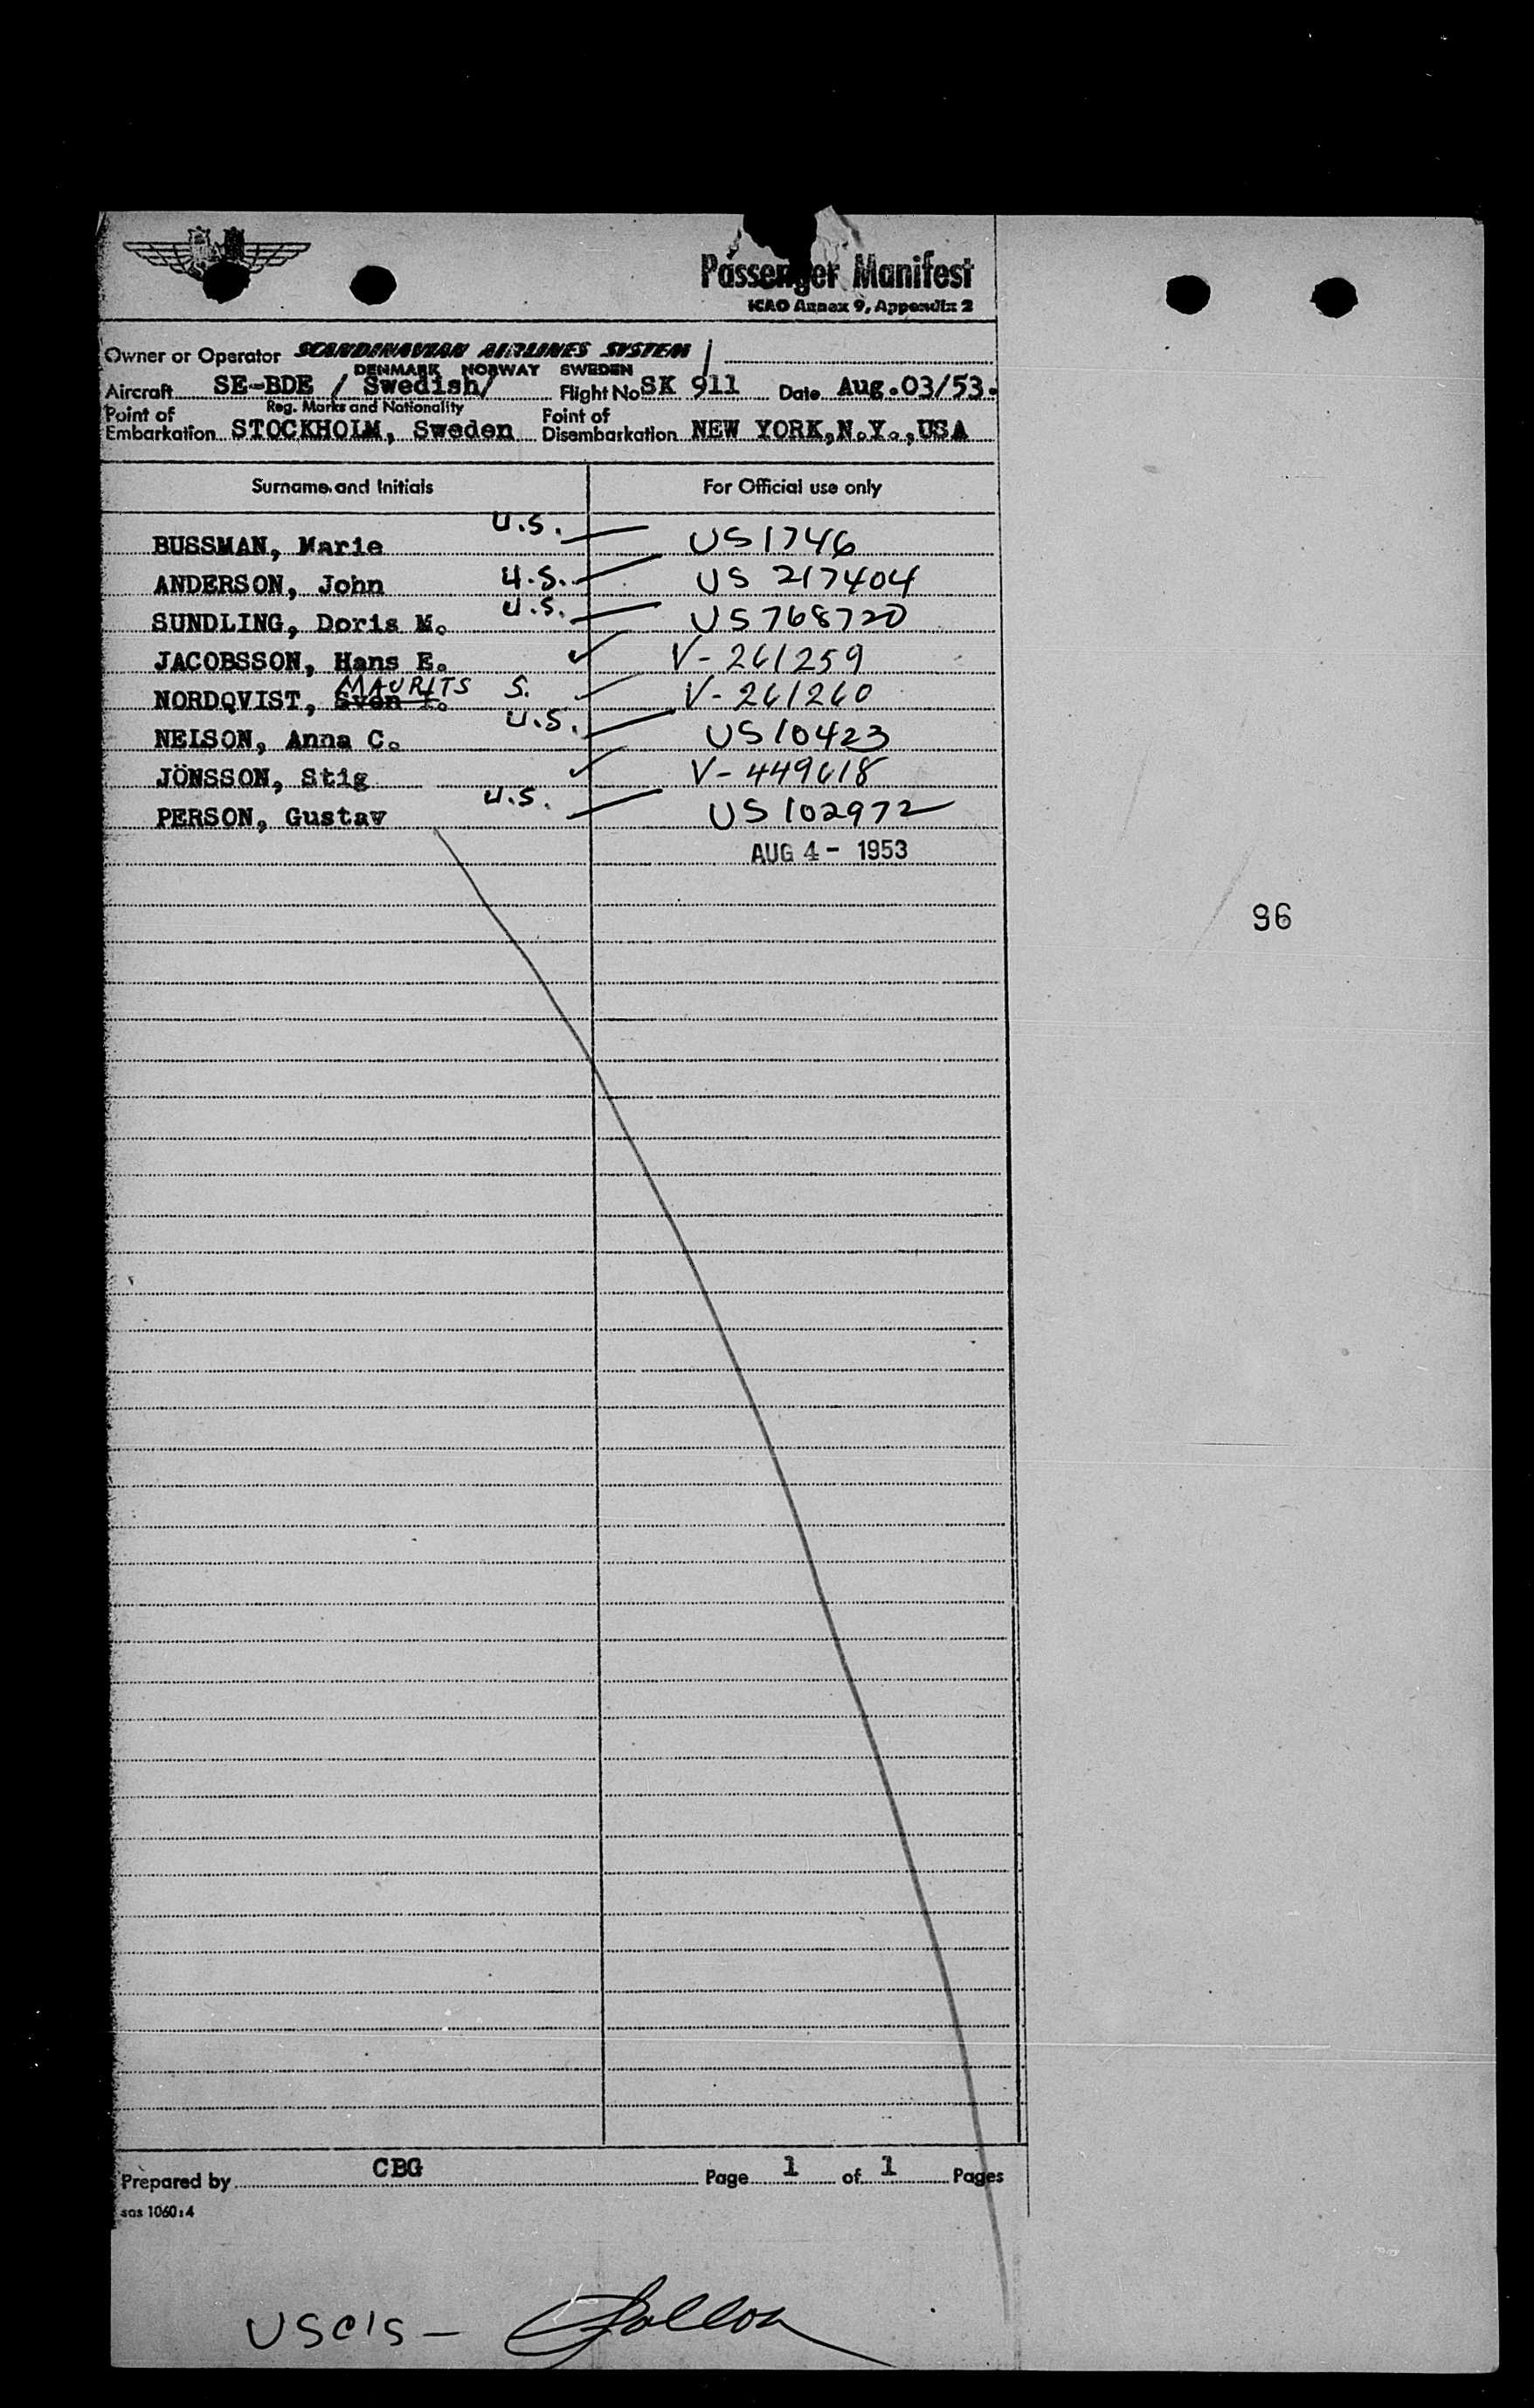 Passenger Manifest
ICAO Annex 9, Appendix 2
Owner or Operator SCANDINAVIAN AIRLINES SYSTEM /
DENMARK NORWAY SWEDEN
Aircraft SE-BDE / Swedish/ Flight No SK 911 Date Aug.03/53.
Reg. Marks and Nationality
Point of Embarkation STOCKHOLM, Sweden Point of Disembarkation NEW YORK,N.Y.,USA
Surname and Initials For Official use only
BUSSMAN, Marie U.S. — US 1746
ANDERSON, John U.S. — US 217404
SUNDLING, Doris M. U.S. — US 768720
JACOBSSON, Hans E. ✓ V-261259
MAURITS S.
NORDQVIST, Sven I. ✓ V-261260
NELSON, Anna C. U.S. — US 10423
JÖNSSON, Stig ✓ V-449618
PERSON, Gustav U.S. — US 102972
AUG 4 - 1953
96
Prepared by CBG Page 1 of 1 Pages
sas 1060:4
USCIS —